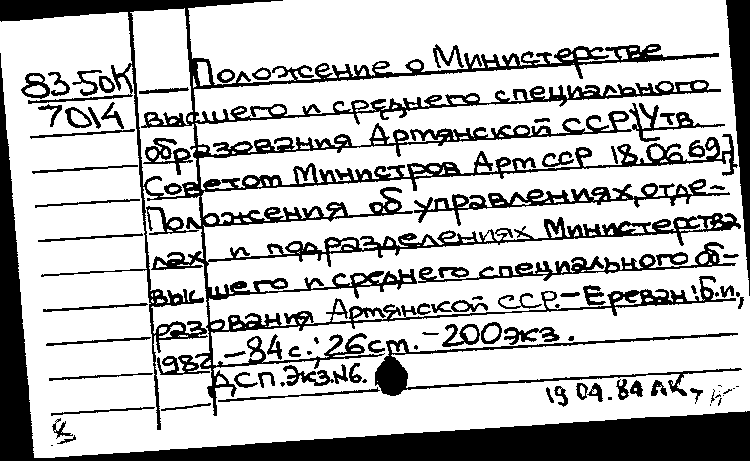 83-50К
7014
Положение о Министерстве
высшего и среднего специального
образования Армянской ССР: [Утв.
Советом Министров Арм ССР 18.06.69]
Положения об управлениях, отде-
лах и подразделениях Министерства
высшего и среднего специального об-
разования Армянской ССР.-Ереван: Б.и.,
1982.-84 с.; 26 см. -200 экз.
ДСП. Экз. №6.
19 04. 84 ЛК